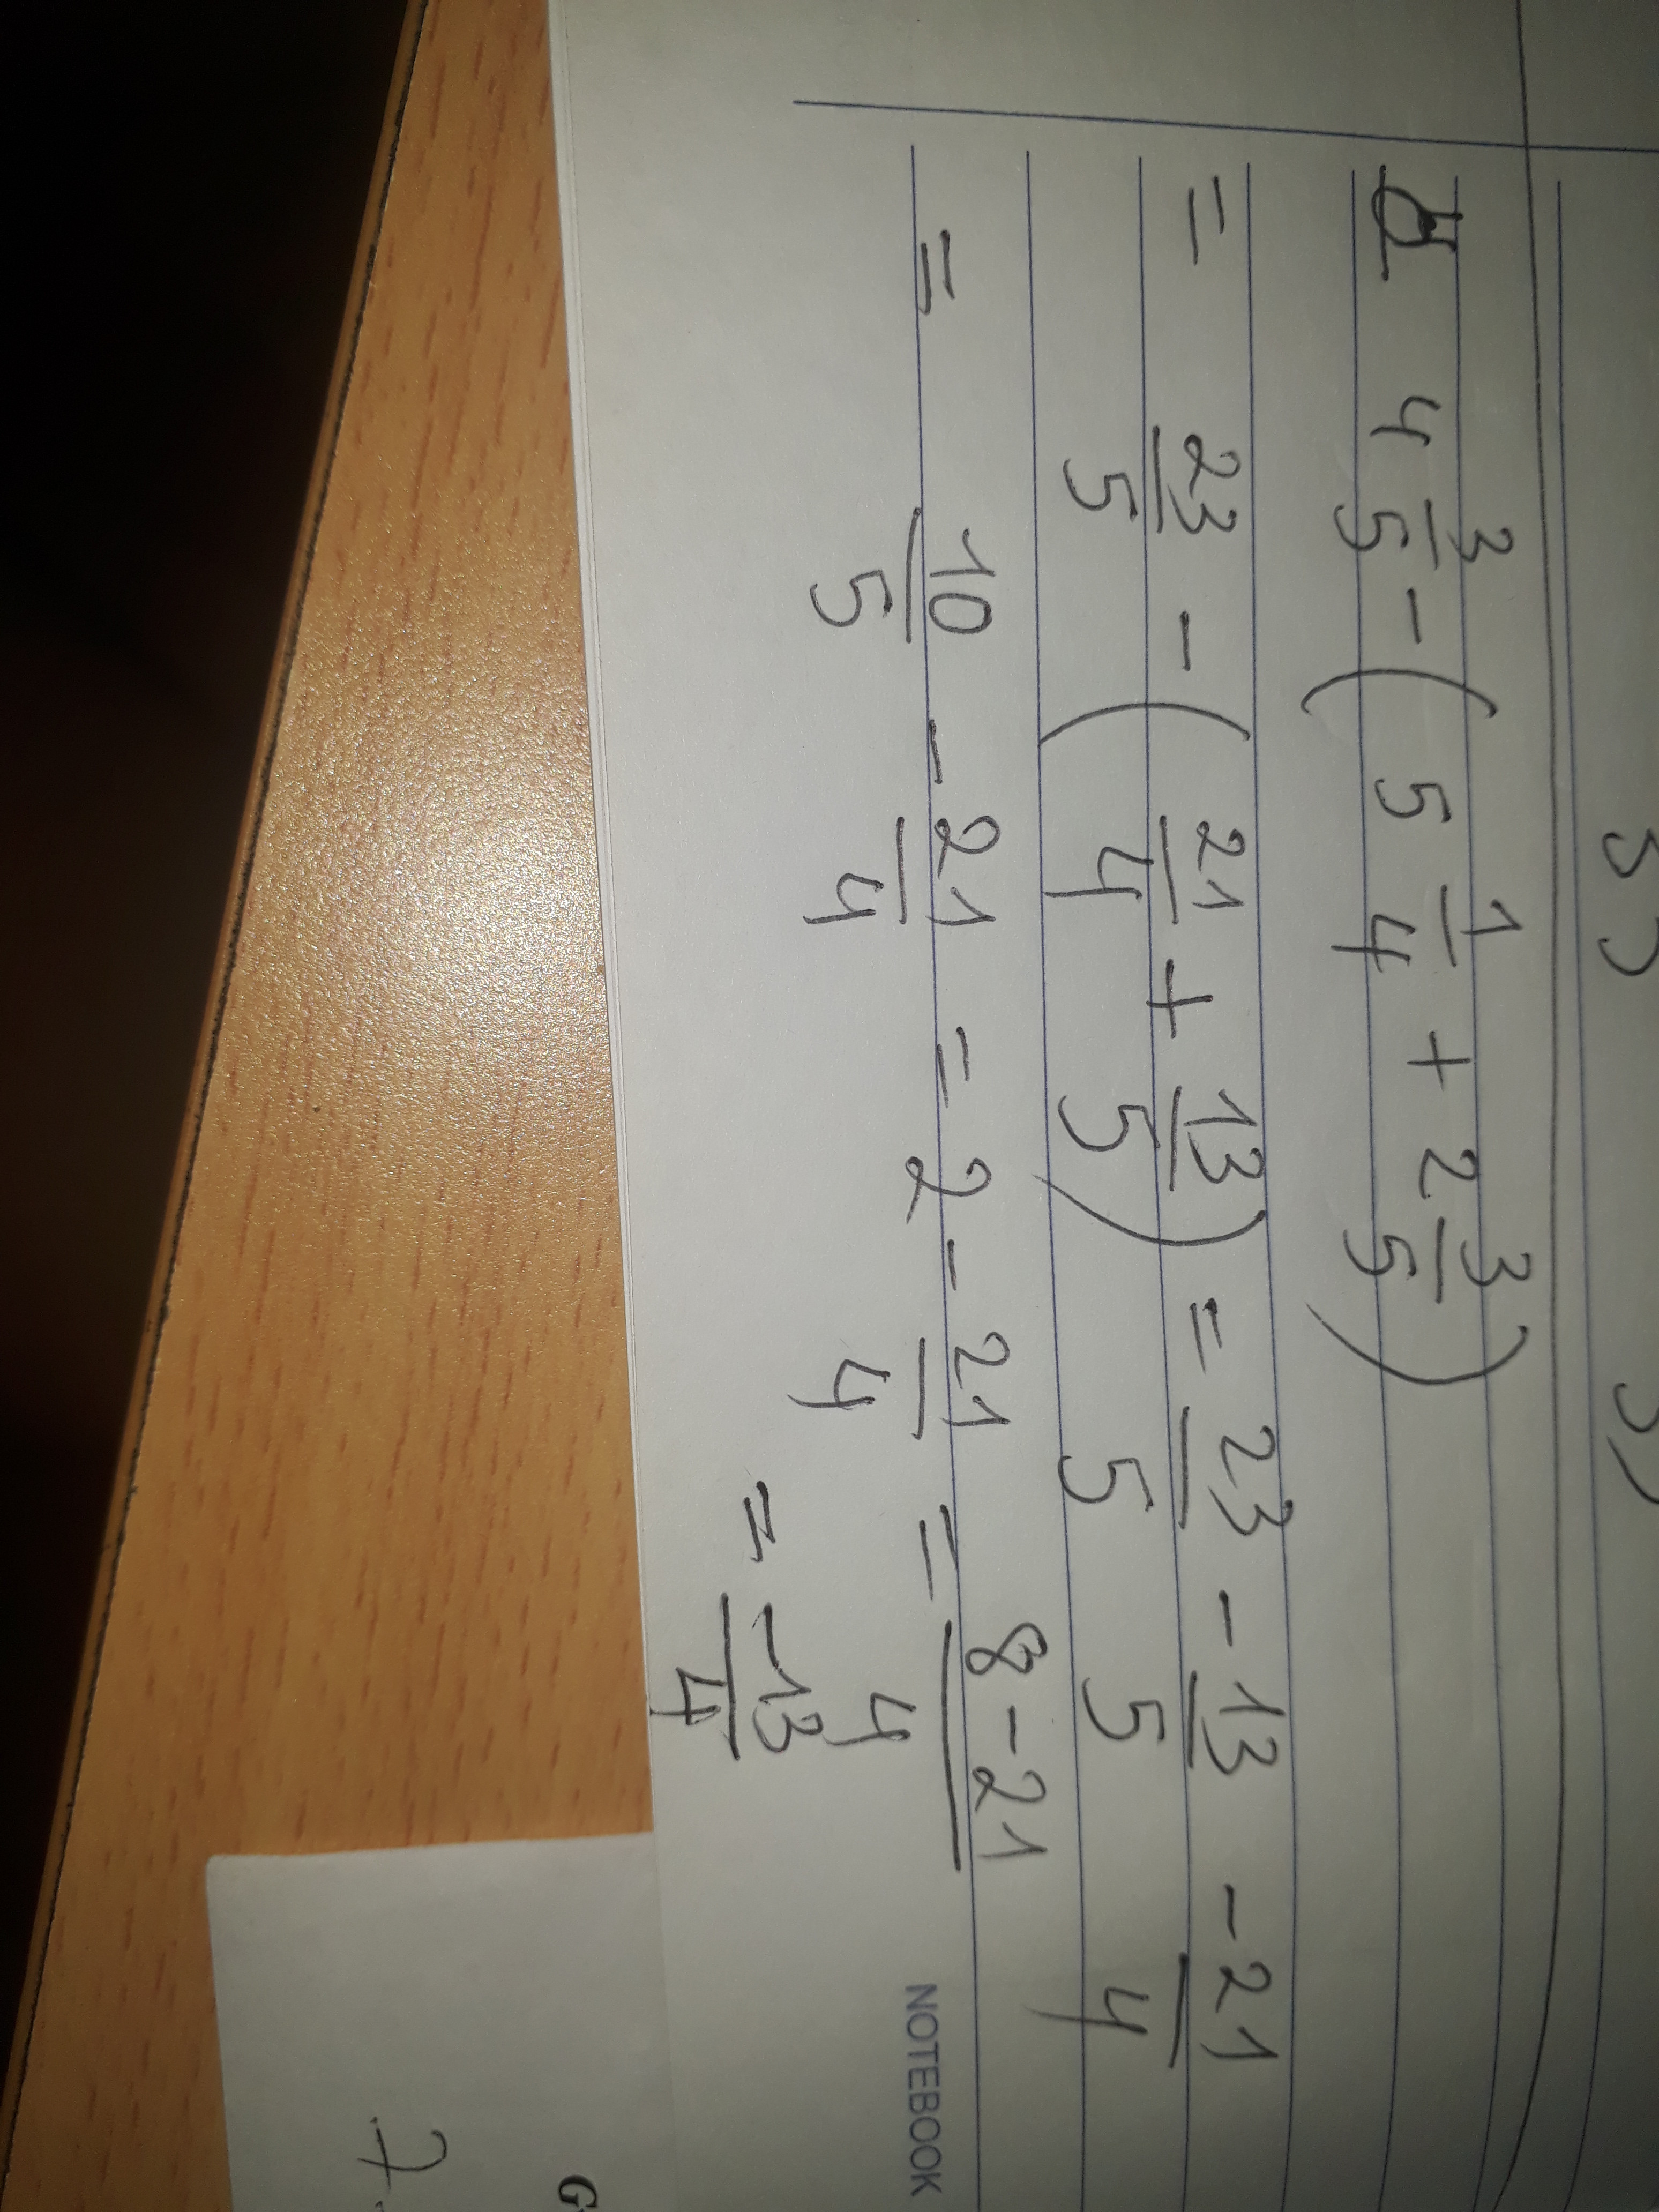 4 3/5 - ( 5 1/4 + 2 3/5 )
= 23/5 - ( 21/4 + 13/5 ) = 23/5 - 13/5 - 21/4
= 10/5 - 21/4 = 2 - 21/4 = 8 - 21/4
= -13/4
NOTEBOOK
G
7